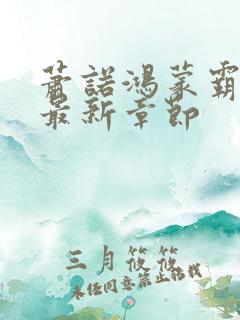 萧诺鸿蒙霸
最新章节
三月筱筱
未经同意禁止转载